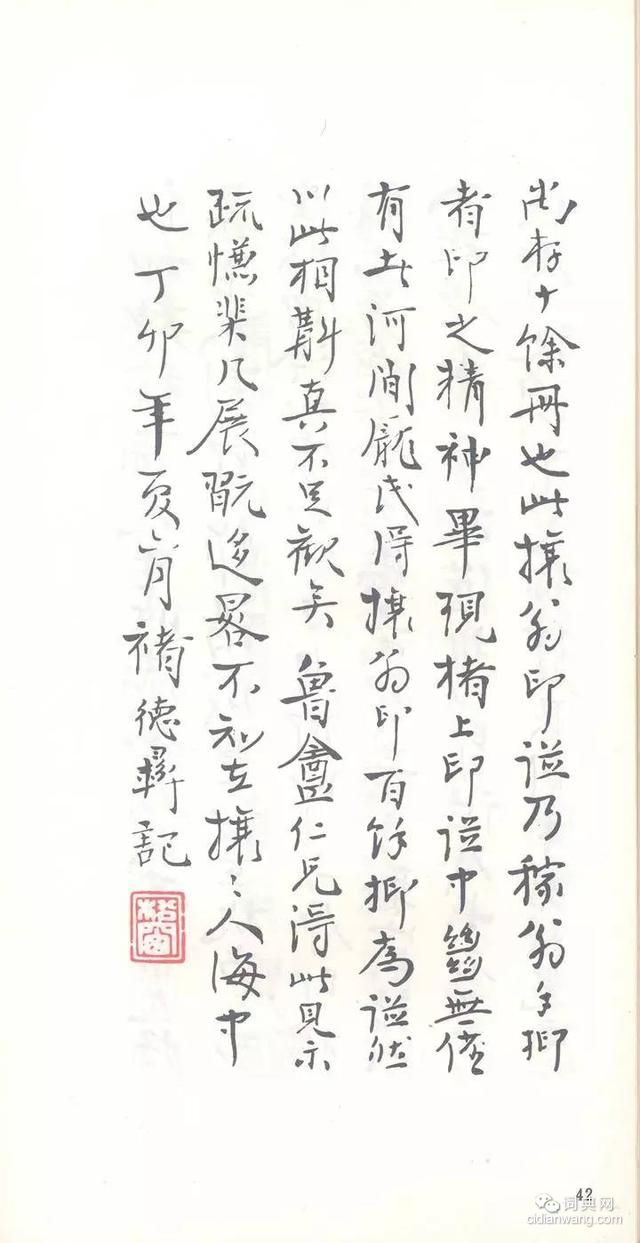 尚存十餘冊也此攘翁印譜乃稼翁手抑
者印之精神畢現楮上印譜中絕無僅
有 河間龐氏得攘翁印百餘抑為譜然
以此相斠真不足觀矣 魯盦仁兄得此見示
疏 棐几展翫迻晷不知在攘〻人海中
也丁卯年夏六月褚德彝記
松窗
42
词典网
cidianwang.com